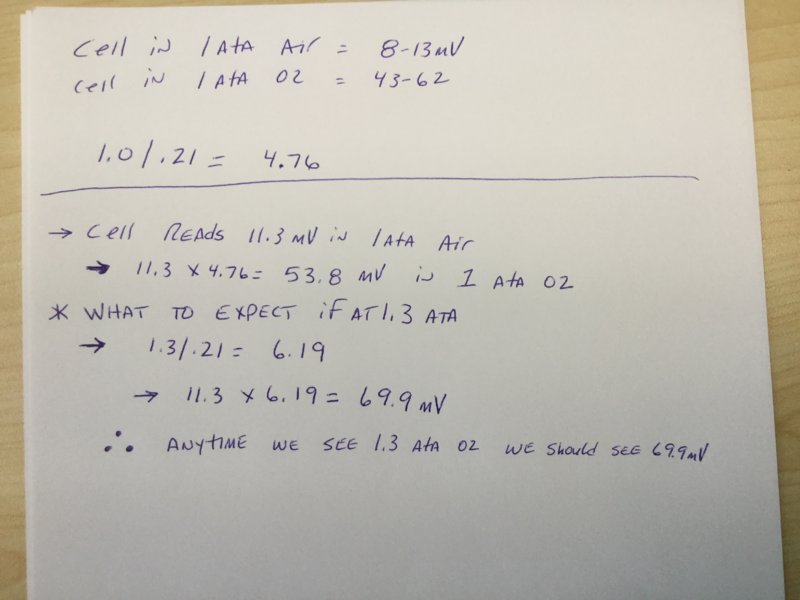 Cell in 1 AtA Air = 8-13mV
Cell in 1 AtA O2 = 43-62
1.0/.21 = 4.76
→ Cell READs 11.3 mV in 1 AtA Air
→ 11.3 x 4.76 = 53.8 mV in 1 AtA O2
* WHAT TO EXPECT iF AT 1.3 ATA
→ 1.3/.21 = 6.19
→ 11.3 x 6.19 = 69.9 mV
∴ ANYtIME WE SEE 1.3 AtA O2 WE Should SEE 69.9mV